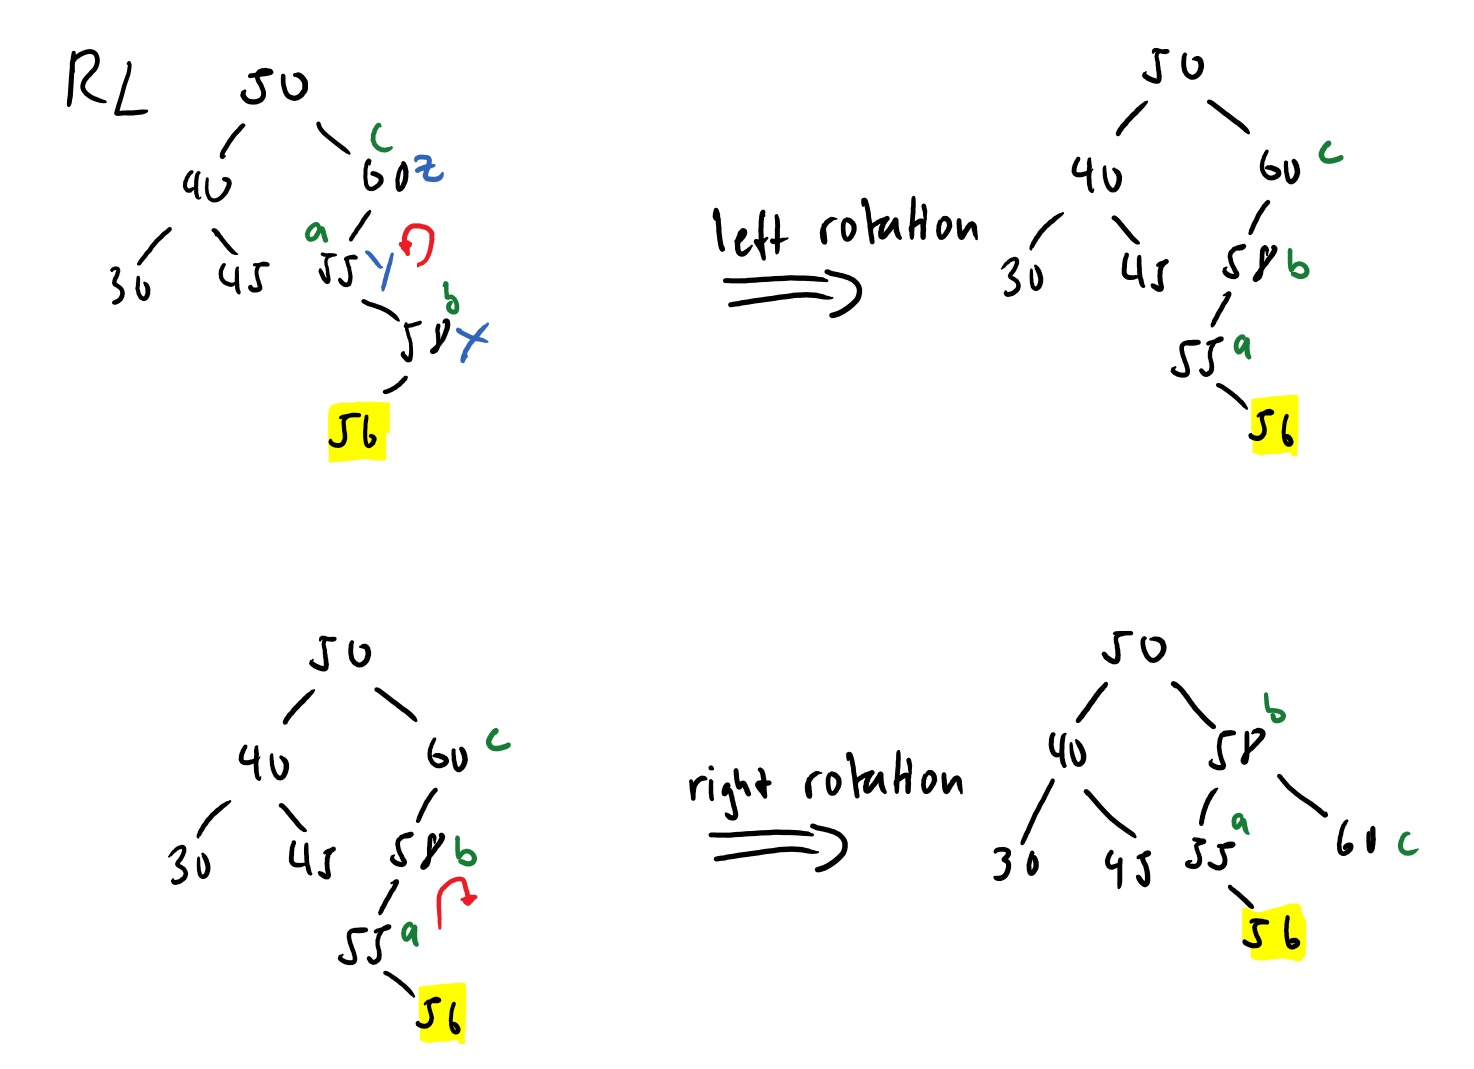 RL
50
c
40 60 z
a
30 45 55 y
b
58 x
56
left rotation
50
40 60 c
30 45 58 b
55 a
56
50
40 60 c
30 45 58 b
55 a
56
right rotation
50
b
40 58
a
30 45 55 60 c
56